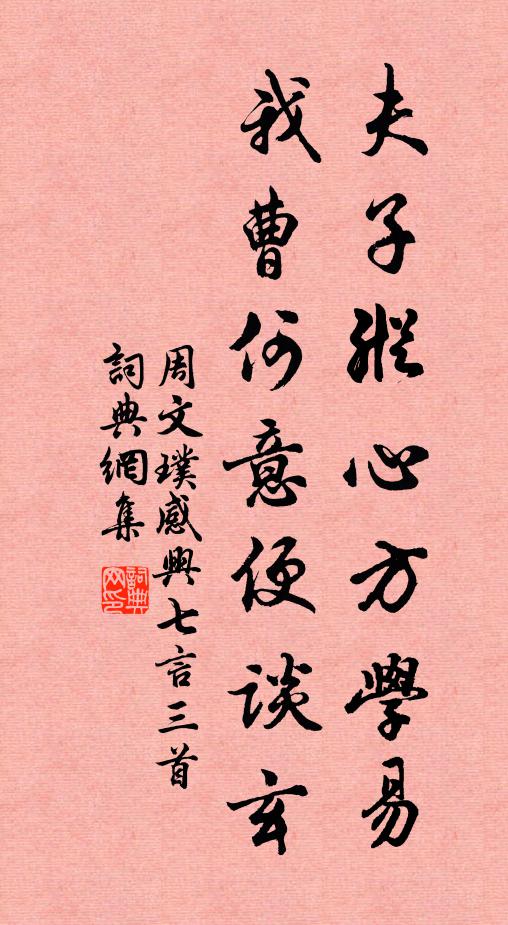 夫子縱心方學易
我曹何意便談玄
周文璞感興七言三首
詞典網集
詞典网印